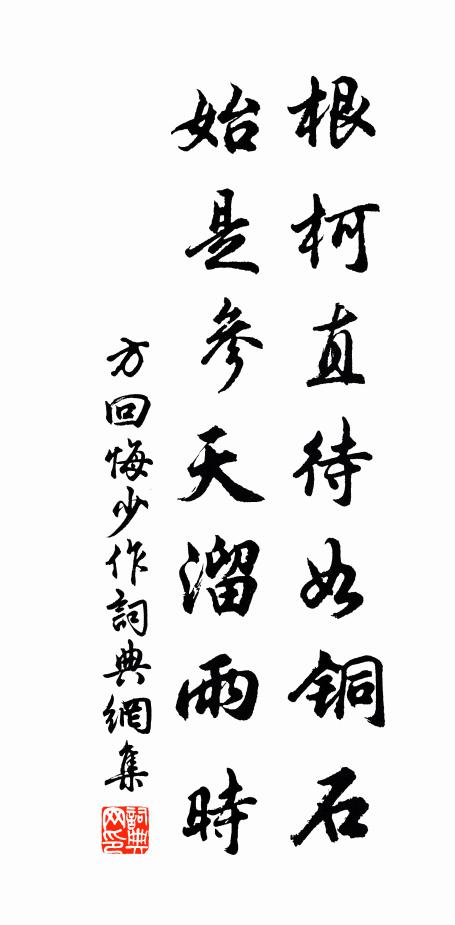 根柯直待如銅石
始是參天溜雨時
方回悔少作詞典網集
詞典網印